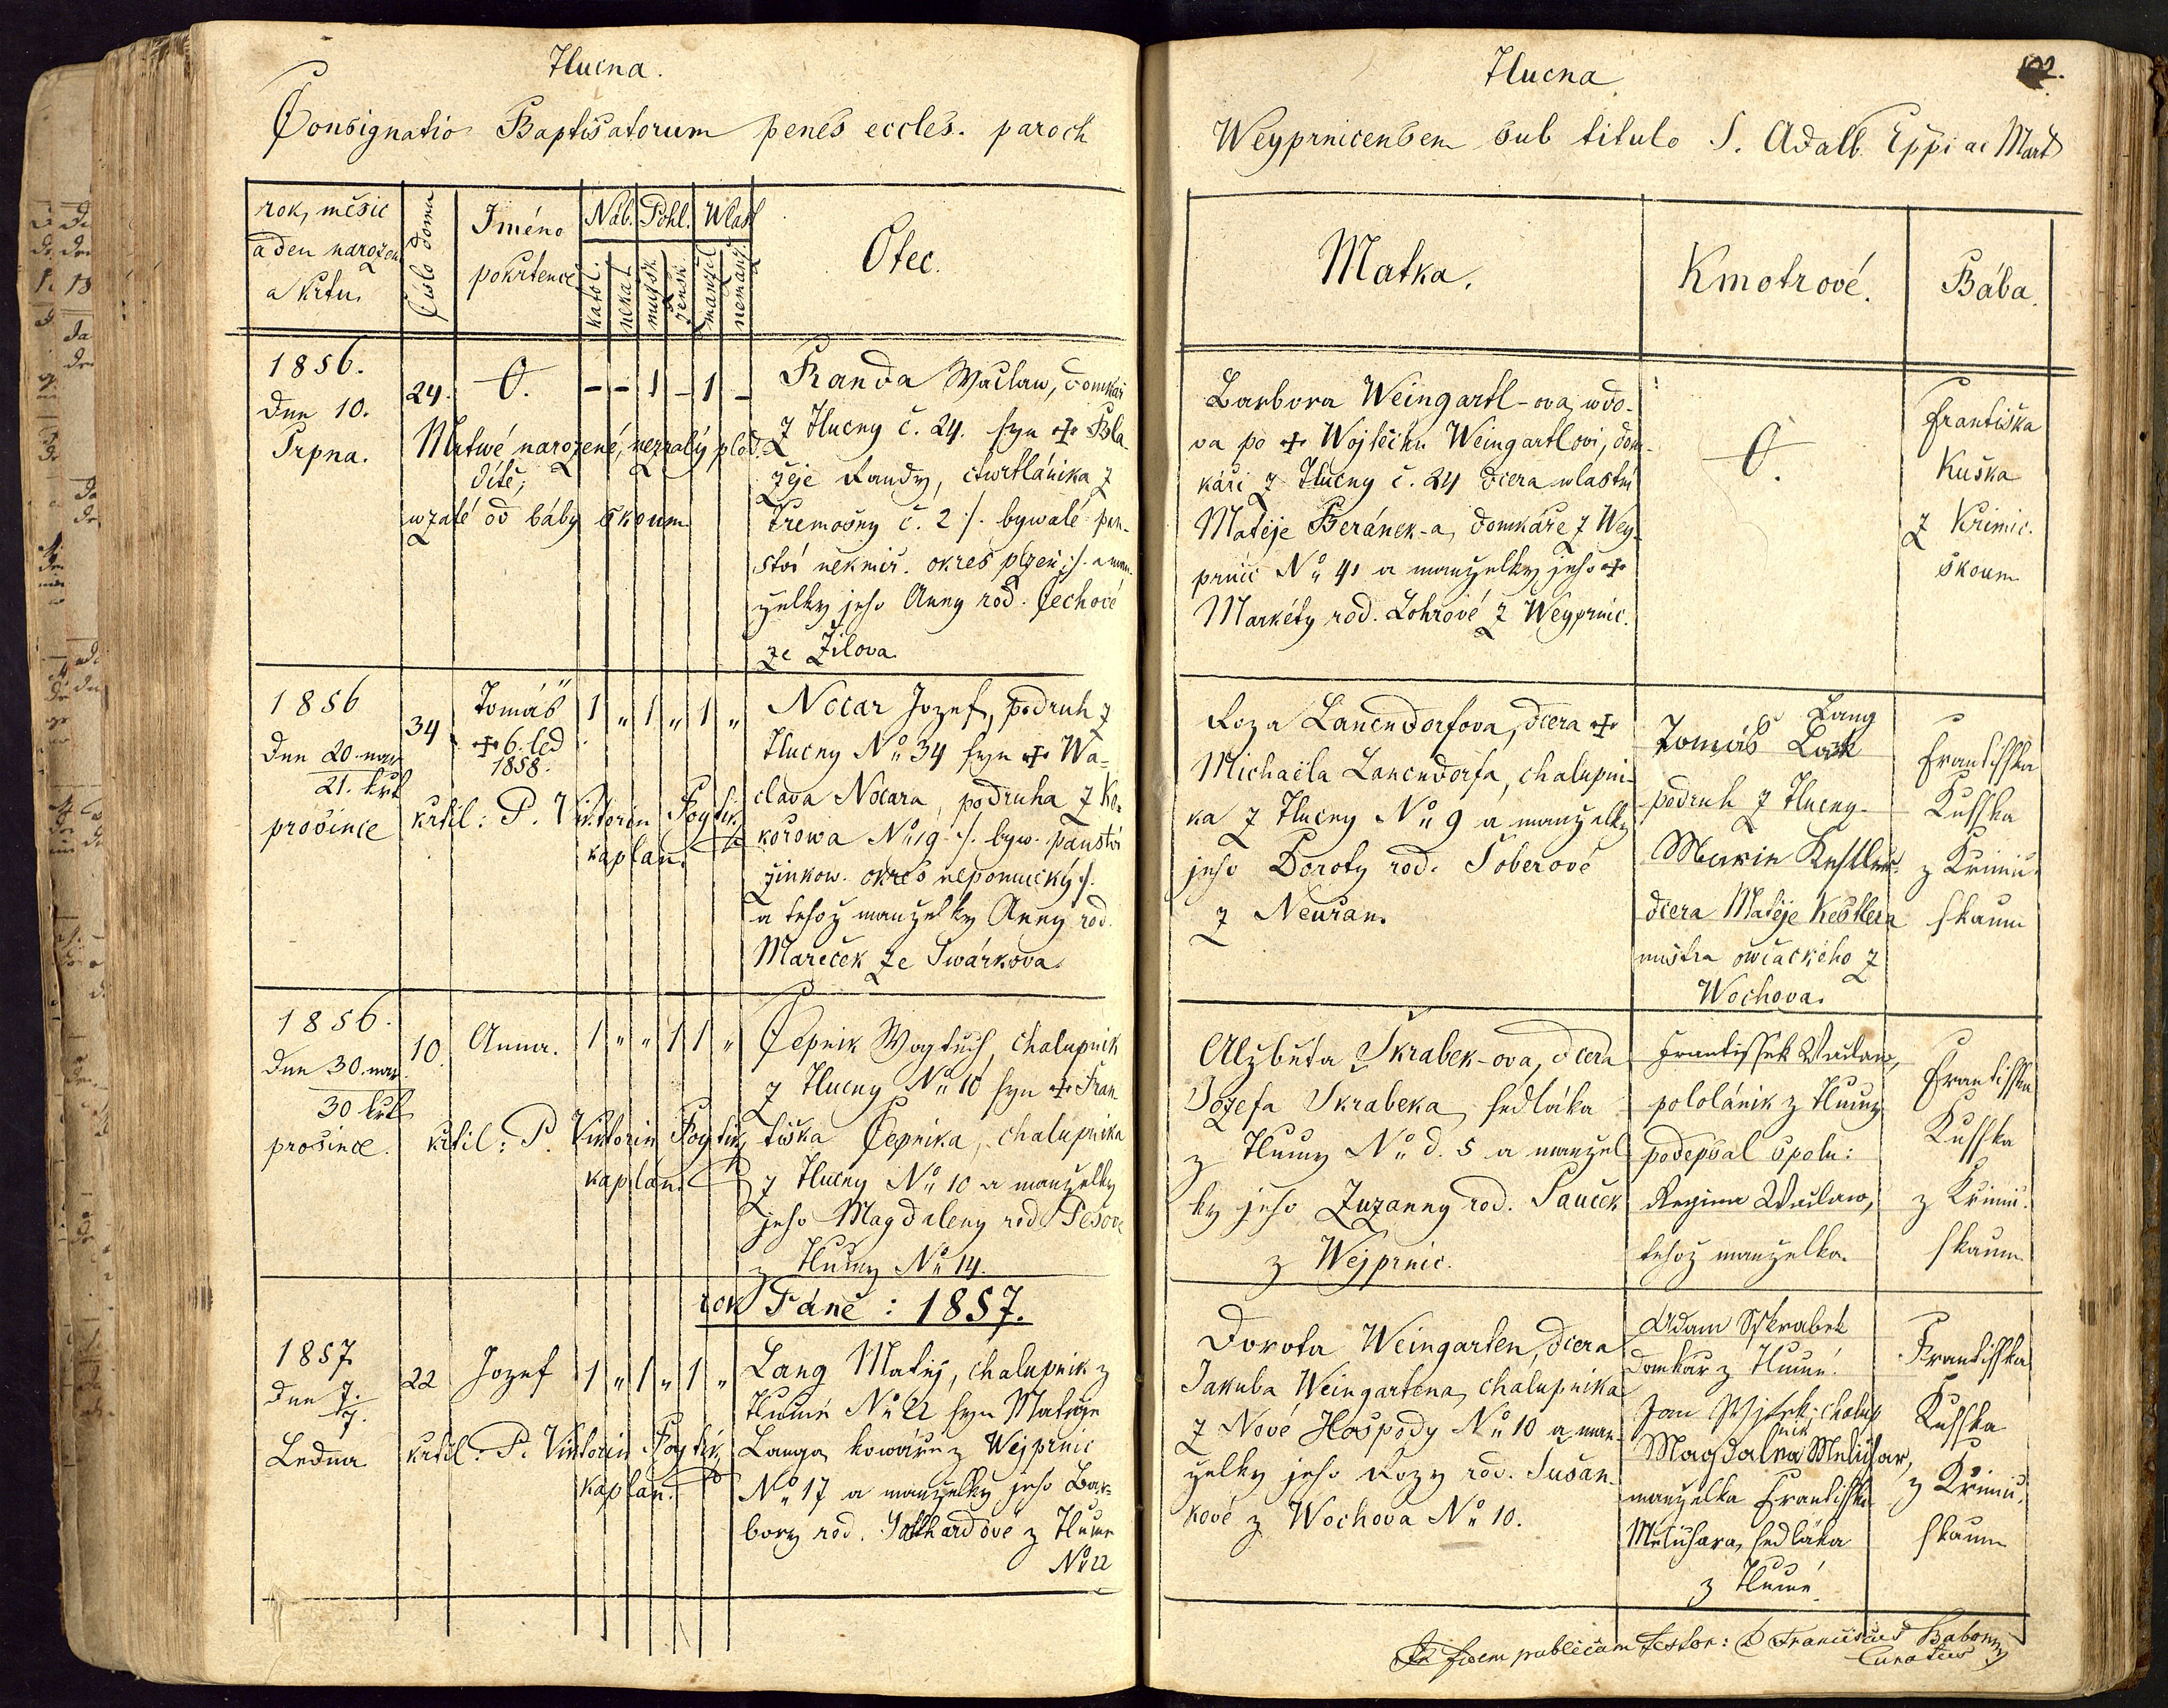 Tlucna.
Consignatio Baptisatorum penes eccles. paroch
rok, měsíc
a den narozen
a křtu.
Číslo domu
Jméno
pokrtence
Náb.
Pohl.
Wlast
katol.
nekat.
mužsk.
žensk.
manžel
nemanž.
Otec.
1856.
Dne 10.
Srpna.
24.
O.
- - 1 - 1 -
Mrtwé narozené, nezralý plod.
dítě,
wzaté od báby skoum
Randa Waclaw, domkář
z Tlucny č. 24. syn + Bla
žeje Randy, čtwrtláníka z
Tremošny č. 2 :/. bywalé pan-
ství nekmíř. okres plzen :/. a man
želky jeho Anny rod. Čechové
ze Žilova
1856
Dne 20. nar
21. křt
prosince
34
Tomáš
+ 6. led
1858.
1 " 1 " 1 "
křtil: P. Viktorin Fogtik
kaplan.
Nocar Jozef, podruh z
Tlucny No 34 syn + Wa-
clava Nocara, podruha z Ko-
kořowa No 19 :/. byw. panství
žinkow. okres nepomucký :/.
a téhož manželky Anny rod.
Mareček ze Swárkova.
1856.
Dne 30. nar
30 křt
prosince.
10.
Anna.
1 " " 1 1 "
křtil: P. Viktorin Fogtik,
kaplán.
Čepnik Wogtěch, chalupnik
z Tlucny No 10 syn + Fran
tiška Čepnika, chalupnika
z Tlucny No 10 a manželky
jeho Magdaleny rod. Pešové
z Tlucny No 14.
rok Páně : 1857.
1857
dne 7.
7.
Ledna
22
Jozef
1 " 1 " 1 "
křtil: P. Viktorin Fogtik,
kaplan.
Lang Matěj, chalupnik z
Tlucné No 22 syn Matěje
Langa, kowáře z Wejprnic
No 17 a manželky jeho Bar-
bory rod. z Tlucné
No 22
Tlucna
102.
Weyprnicensem sub titulo S. Adalb. Eppi ac Mart
Matka.
Kmotrové.
Bába.
Barbora Weingartl-ova, wdo-
va po + Wojtěchu Weingartlovi, dom-
káři z Tlucny č. 24 dcera wlastní
Matěje Beránek-a, domkáře z Wey-
prnic No 41 a manželky jeho +
Markéty rod. Lohrové z Weyprnic.
O.
Františka
Kuska
z Krimic.
skoum
Roza Lanendorfova, dcera +
Michaëla Lanendorfa, chalupni-
ka z Tlucny No 9 a manželky
jeho Doroty rod. Soberové
z Neuřan.
Lang
Tomáš
podruh z Tlucny
Marie Kestler
dcera Matěje Kestlera
mistra owčáckého z
Wochova.
Františka
Kusska
z Krimic.
skaum
Alžběta Skrabek-ova, dcera
Jozefa Skrabeka, sedláka
z Tlucny No d. 5 a manžel
ky jeho Zuzanny rod. Saucek
z Wejprnic.
Frantissek Waclaw,
pololánik z Tlucny
podepsal spolu:
Regina Waclaw,
tehož manželka.
Františka
Kusska
z Krimic.
skaum
Dorota Weingarten, dcera
Jakuba Weingartena, chalupnika
z Nové Hospody No 10 a man-
želky jeho Rozy rod. Susan-
kové z Wochova No 10.
Adam Sskrabek
domkář z Tlucné.
Jan chalup
nik
Magdalena Melichar,
manželka Františka
Melichara, sedláka
z Tlucné
Frantisska
Kusska
z Krimic.
skaum
In fidem publicam testor: P. Franciscus
Curatus